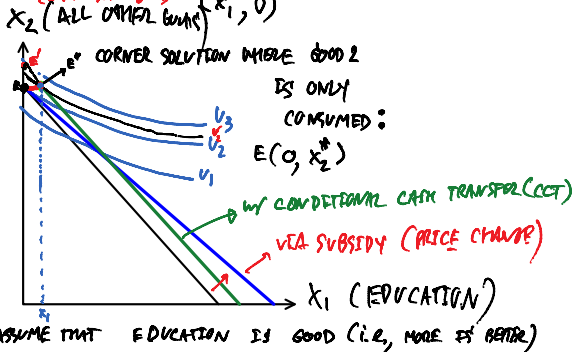 x₁, 0)
X₂ (ALL OTHER GOODS)
E' E''
CORNER SOLUTION WHERE GOOD 2
IS ONLY
CONSUMED:
E(0, X₂*)
U₃
U₂
U₁
W/ CONDITIONAL CASH TRANSFER (CCT)
VIA SUBSIDY (PRICE CHANGE)
X₁ (EDUCATION)
x₁
ASSUME THAT EDUCATION IS GOOD (i.e, MORE IS BETTER)